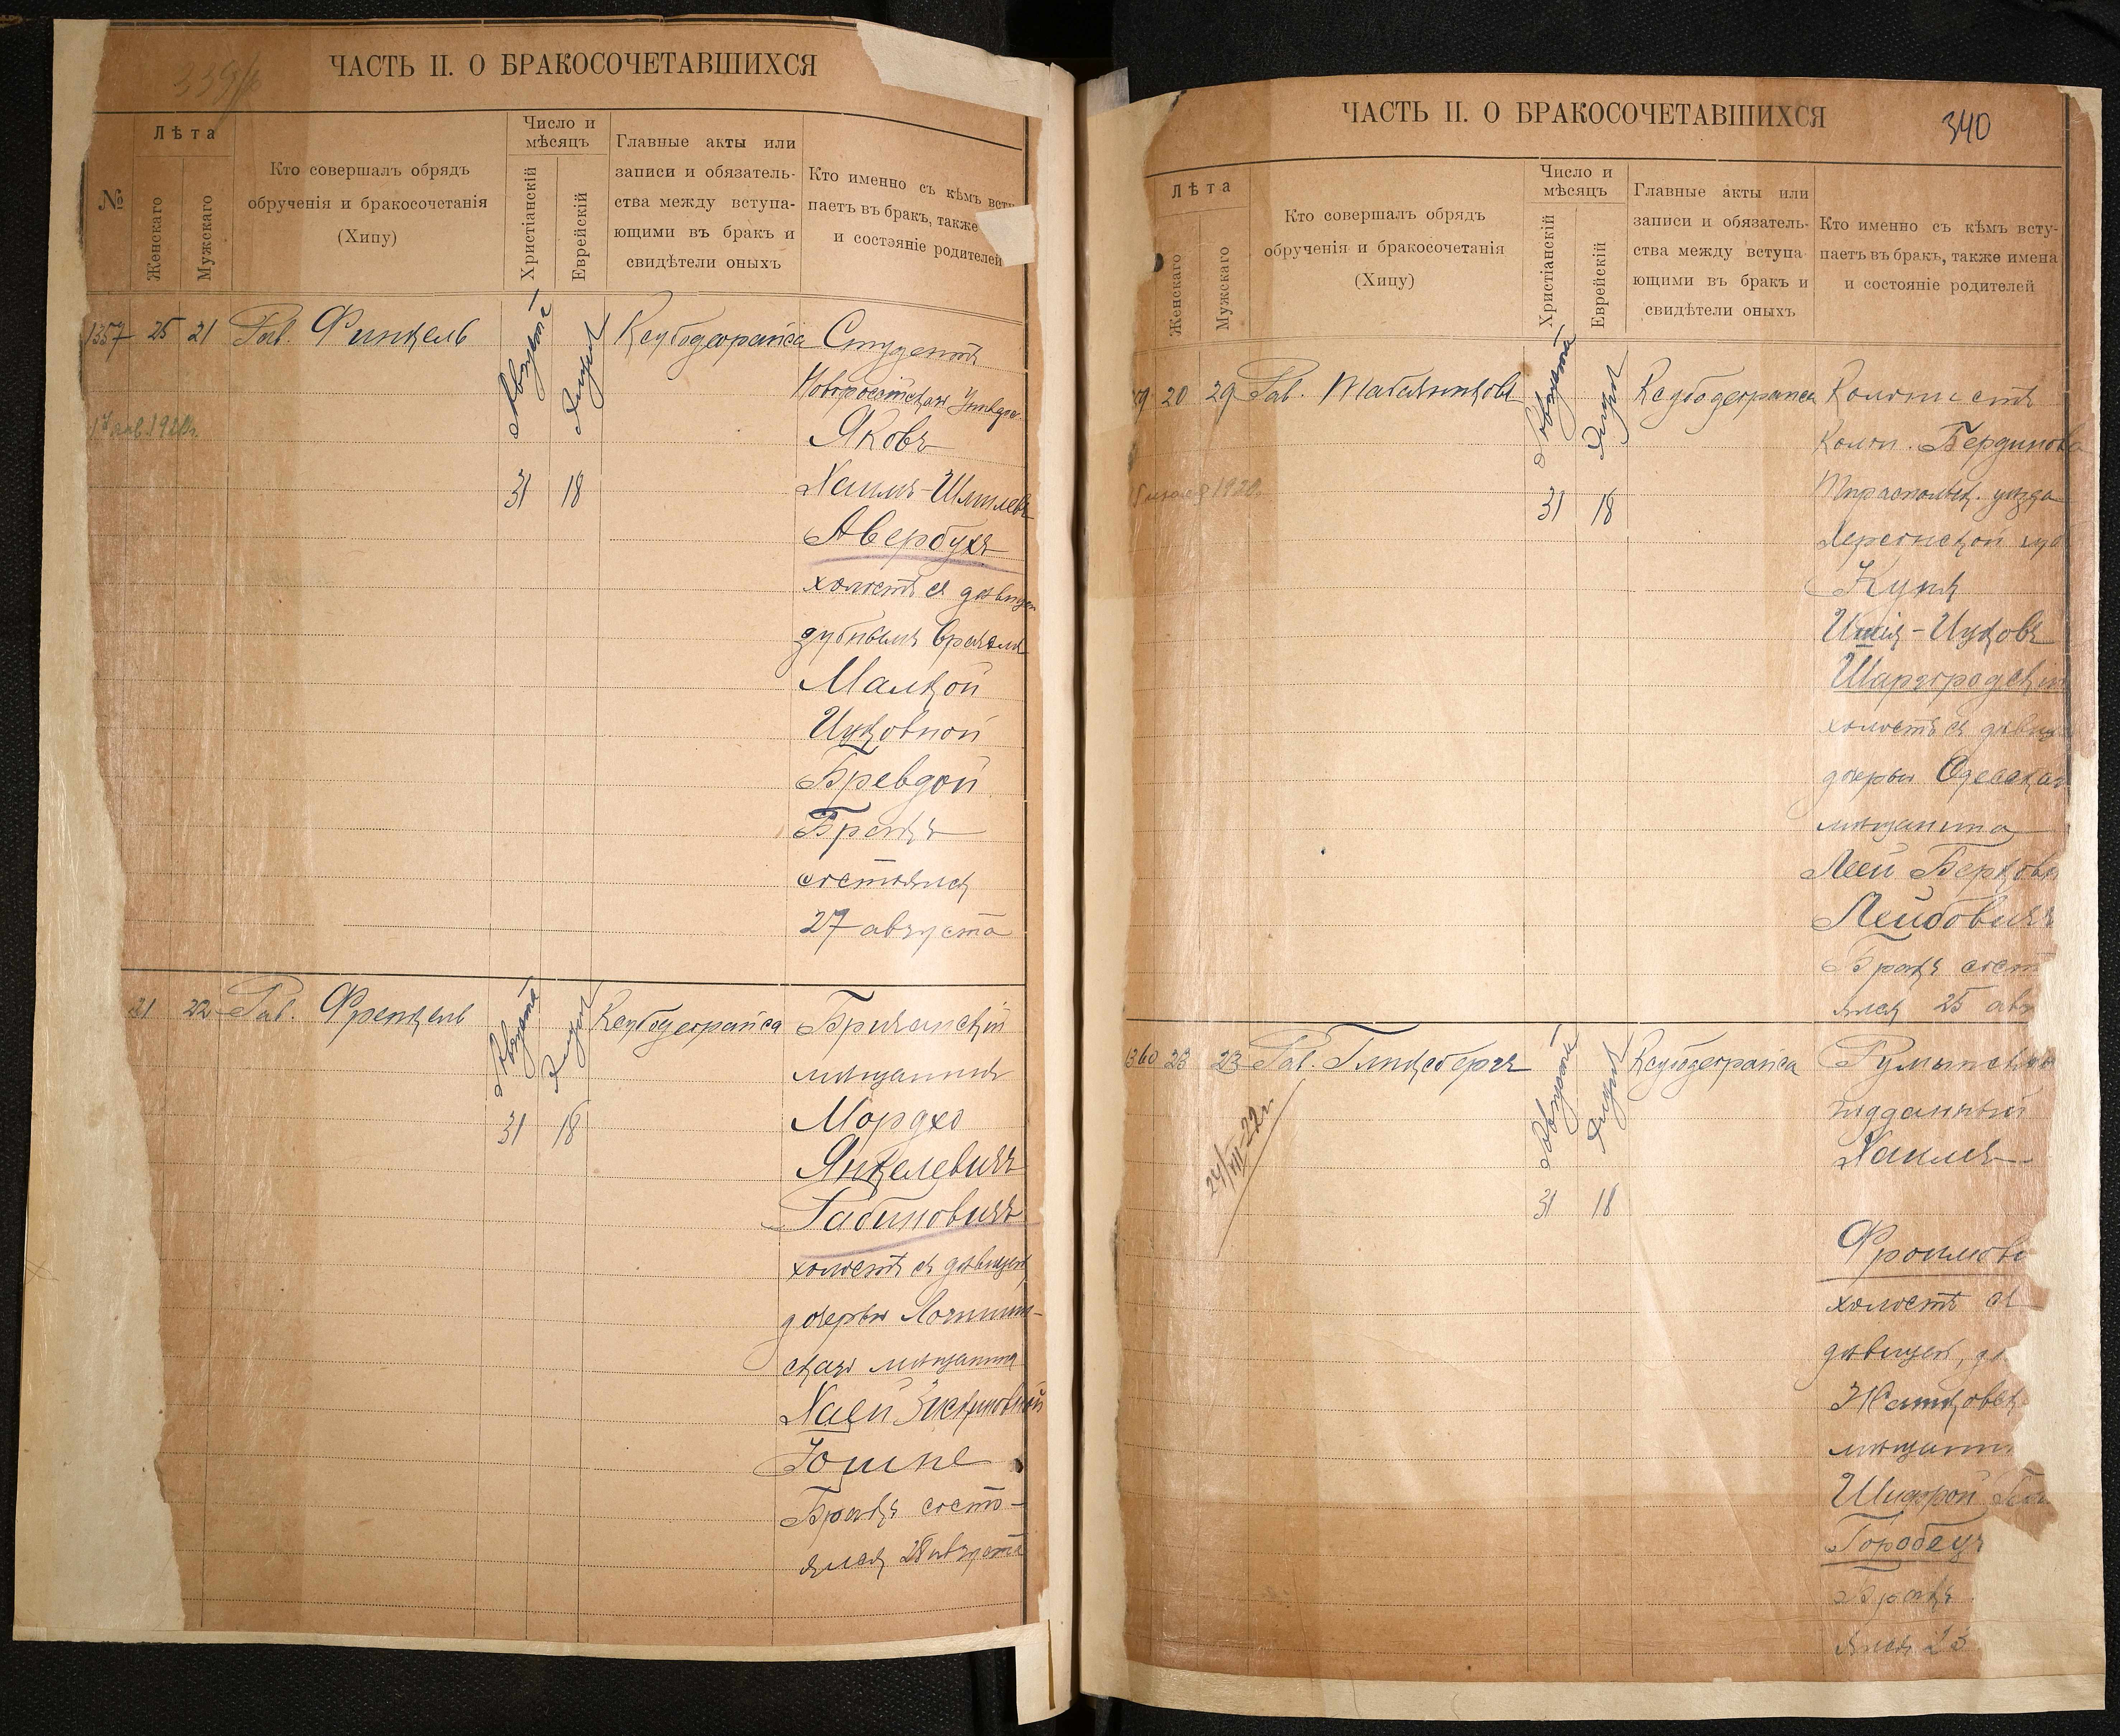 339/
ЧАСТЬ II. О БРАКОСОЧЕТАВШИХСЯ
№
Лѣта
Женскаго
Мужскаго
Кто совершалъ обрядъ
обрученія и бракосочетанія
(Хипу)
Число и
мѣсяцъ
Христіанскій
Еврейскій
Главные акты или
записи и обязатель-
ства между вступа-
ющими въ бракъ и
свидѣтели оныхъ
Кто именно съ кѣмъ всту
паетъ въ бракъ, также
и состояніе родителей
1357 25 21 Рав. Финкель
Августа
Элула
31 18
Ксубодеорайса
Студентъ
Яковъ
Хаимъ-Шмилевъ
Авербухъ
холостъ съ дѣвицей
зубнымъ врачемъ
Малкой
Ицковной
Бревдой
Бракъ
состоялся
27 августа
21 22 Рав. Френкель
Августа
Элула
31 18
Ксубодеорайса
Бричанскій
мѣщанинъ
Мордхо
Янкелевичъ
Рабиновичъ
холостъ съ дѣвицей
дочерью
скаго мѣщанина
Хаей
Бракъ состо-
ялся 28 августа
ЧАСТЬ II. О БРАКОСОЧЕТАВШИХСЯ
340
Лѣта
Женскаго
Мужскаго
Кто совершалъ обрядъ
обрученія и бракосочетанія
(Хипу)
Число и
мѣсяцъ
Христіанскій
Еврейскій
Главные акты или
записи и обязатель-
ства между вступа-
ющими въ бракъ и
свидѣтели оныхъ
Кто именно съ кѣмъ всту-
паетъ въ бракъ, также имена
и состояніе родителей
59 20 29 Рав. Табачниковъ
Августа
Элула
31 18
Ксубодеорайса
Колонистъ
Колон. Бердинова
Тираспольск. уѣзда
Херсонской губ
Куна
Ицковъ
Шаргородскій
холостъ съ дѣвицей
дочерью Одесскаго
мѣщанина
Леей Берковн
Лейбовичъ
Бракъ сост
ялся 25 авг
360 23 23 Рав. Гинсбергъ
24/VII-22г.
Августа
Элула
31 18
Ксубодеорайса
Румынскій
подданный
Хаимъ
Фроимови
холостъ съ
дѣвицей, до
мѣщанин
Шифрой
Горобецъ
Бракъ
ялся 23